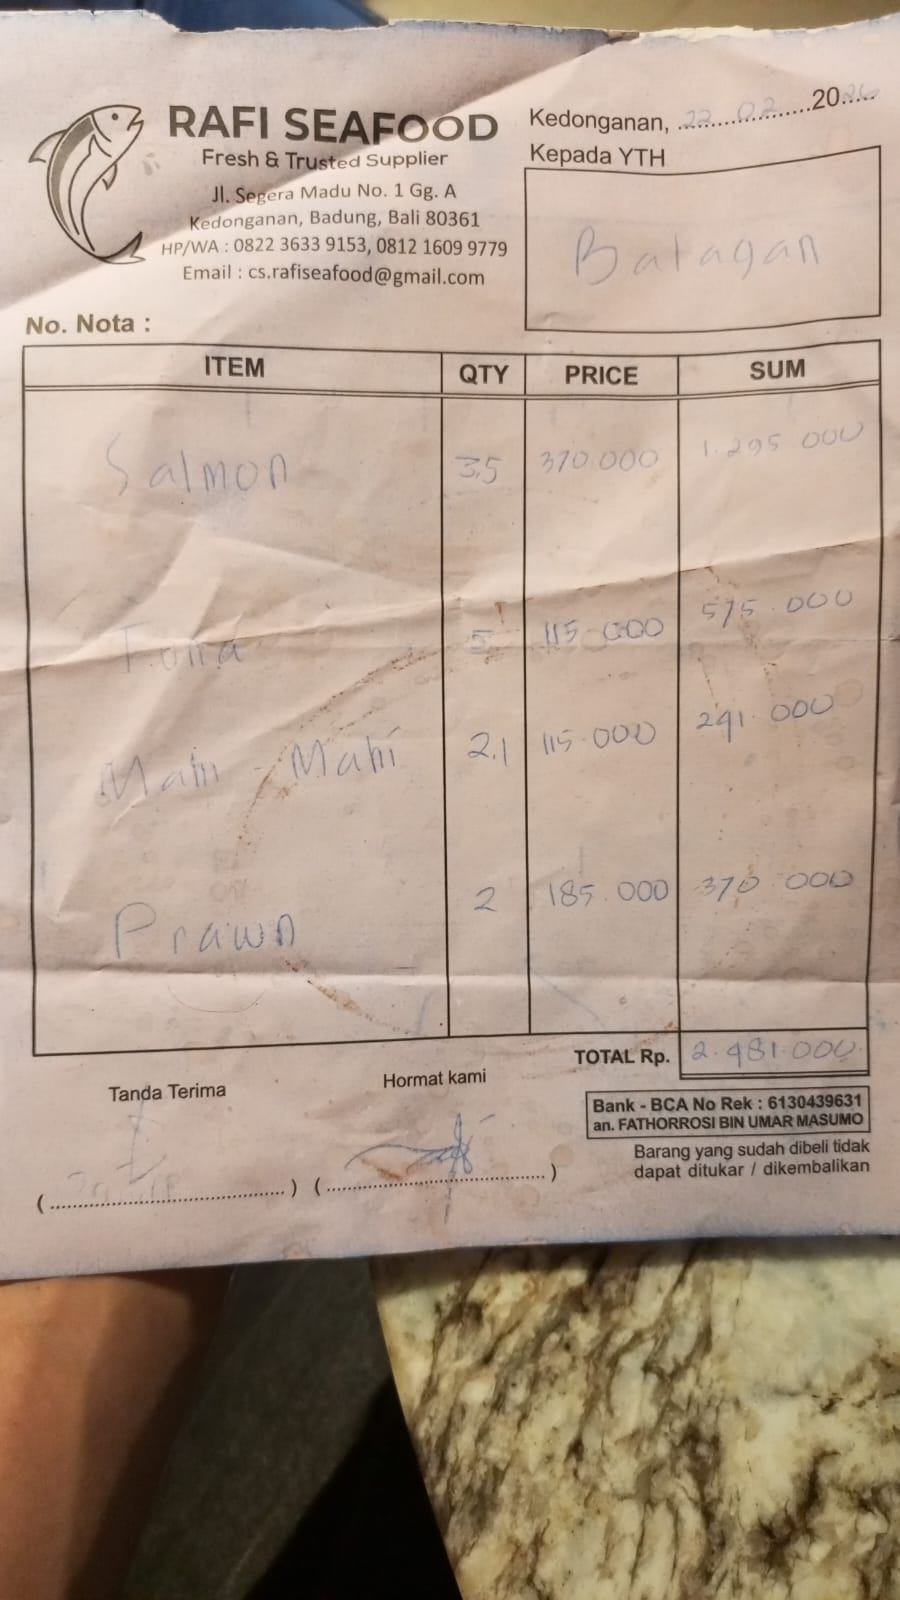 RAFI SEAFOOD
Fresh & Trusted Supplier
Jl. Segera Madu No. 1 Gg. A
Kedonganan, Badung, Bali 80361
HP/WA : 0822 3633 9153, 0812 1609 9779
Email : cs.rafiseafood@gmail.com
Kedonganan, 22 02 2026
Kepada YTH
Batagan
No. Nota :
ITEM QTY PRICE SUM
Salmon 3,5 370.000 1.295 000
Tuna 5 115.000 575.000
Mahi - Mahi 2,1 115.000 241.000
Prawn 2 185.000 370 000
TOTAL Rp. 2.481.000
Tanda Terima
Hormat kami
Bank - BCA No Rek : 6130439631
an. FATHORROSI BIN UMAR MASUMO
Barang yang sudah dibeli tidak
dapat ditukar / dikembalikan
(..............................) (..............................)